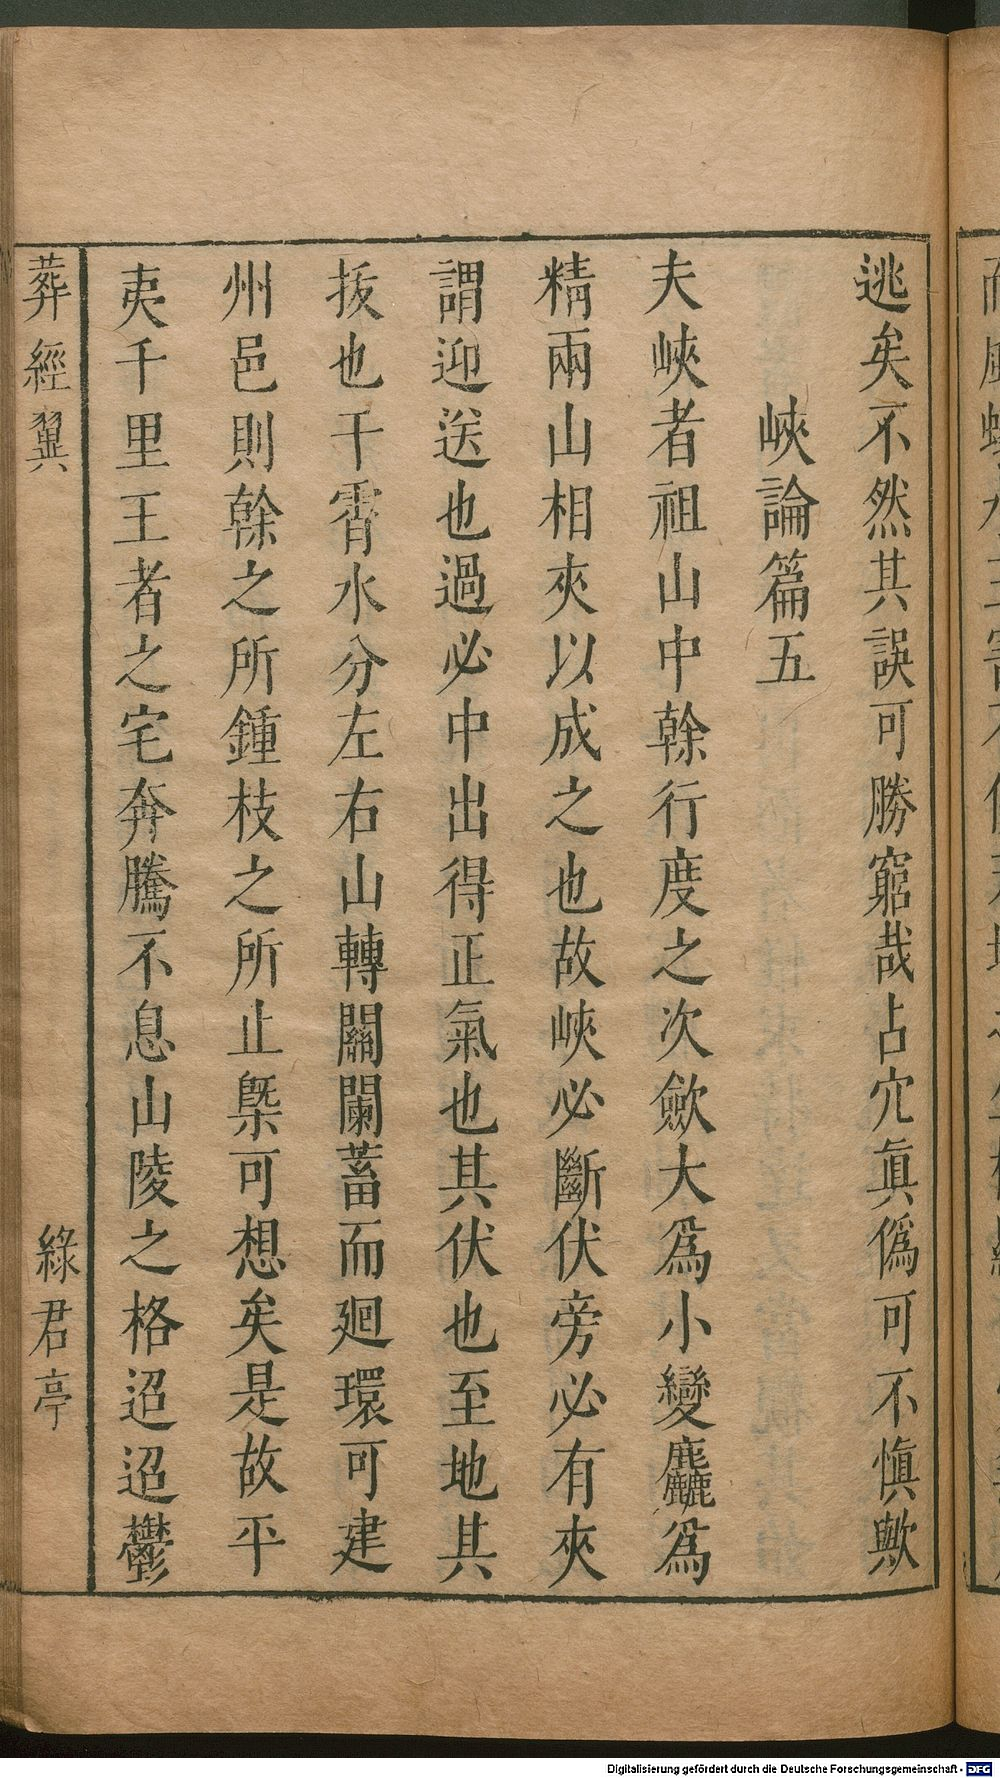 逃矣不然其誤可勝窮哉占穴眞僞可不愼歟
峽論篇五
夫峽者祖山中榦行度之次歛大爲小變麤爲
精兩山相夾以成之也故峽必斷伏旁必有夾
謂迎送也過必中出得正氣也其伏也至地其
拔也干霄水分左右山轉關闌蓄而廻環可建
州邑則榦之所鍾枝之所止槩可想矣是故平
夷千里王者之宅奔騰不息山陵之格迢迢鬱
葬經翼
綠君亭
Digitalisierung gefördert durch die Deutsche Forschungsgemeinschaft - DFG